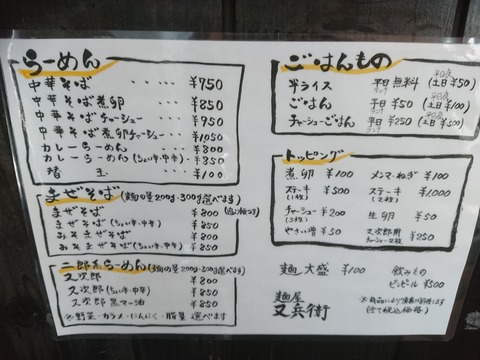 らーめん
中華そば ・・・・ ¥750
中華そば煮卵 ・・・ ¥850
中華そばチャーシュー・・ ¥950
中華そば煮卵チャーシュー・・ ¥1050
カレーらーめん ・・・・ ¥800
カレーらーめん(ちょい辛・中辛) ¥850
替玉 ・・・・ ¥100
まぜそば (麺の量200g・300g選べます)
まぜそば ¥800
まぜそば(ちょい辛・中辛) ¥850
みそまぜそば ¥800
みそまぜそば(ちょい辛・中辛) ¥850
二郎系らーめん (麺の量200g・300g選べます)
又次郎 ¥800
又次郎(ちょい辛・中辛) ¥850
又次郎 黒マー油 ¥850
※野菜・カラメ・にんにく・脂量 選べます
ごはんもの
半ライス 平日ランチ 無料 (土日¥50)
ごはん 平日ランチ ¥50 (土日¥100)
チャーシューごはん 平日ランチ ¥250 (土日¥300)
トッピング
煮卵 ¥100 メンマ・ねぎ ¥100
ステーキ(1枚) ¥500 ステーキ(2枚) ¥1,000
チャーシュー(3枚) ¥200 生卵 ¥50
やさい増 ¥50 又次郎用チャーシュー2枚 ¥250
麺大盛 ¥100 飲みもの
ビンビール ¥500
麺屋
又兵衛
(全て税込価格)